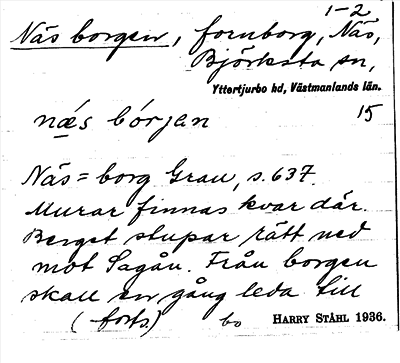 1-2
Näs borgen, fornborg, Näs,
Björksta sn,
Yttertjurbo hd, Västmanlands län.
nǽs bórjan 15
Näs=borg Grau, s. 637.
Murar finnas kvar där.
Berget stupar rätt ned
mot Sagån. Från borgen
skall en gång leda till
(forts.) bo HARRY STÅHL 1936.